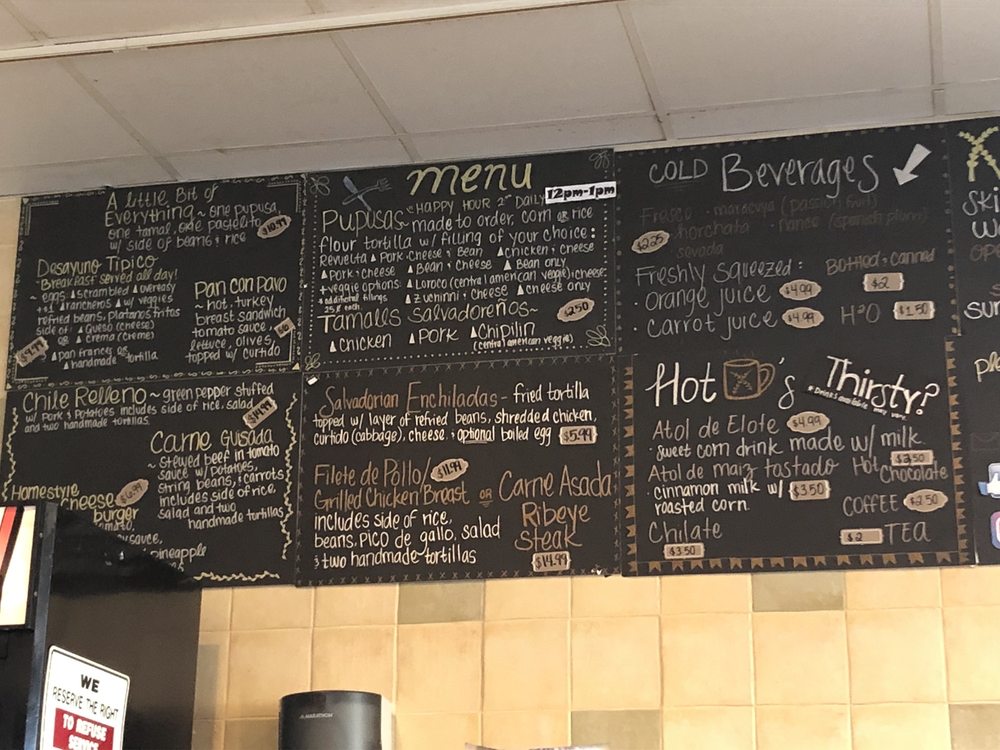 A little Bit of
Everything ~ one pupusa,
one tamal, one pastelito
w/ side of beans & rice
Desayuno Tipico
~ Breakfast served all day!
~ eggs: scrambled overeasy
rancheros w/ veggies
refried beans, platanos fritos
side of: Queso (cheese)
or crema (crema)
pan frances or
handmade tortilla
Pan con Pavo
~ hot turkey
breast sandwich
tomato sauce,
lettuce, olives,
topped w/ curtido
menu
12pm-1pm
"HAPPY HOUR 2 DAILY
Pupusas ~ made to order, corn or rice
flour tortilla w/ filling of your choice:
Revuelta pork, cheese & Bean chicken & cheese
pork & cheese Bean & cheese Bean only
veggie options: Loroco (central american veggie) & cheese
additional fillings
25¢ each
zucchini & cheese cheese only
Tamales Salvadoreños ~
$2.50
chicken pork Chipilin
(central american veggie)
COLD Beverages
Fresco · maracuya (passion fruit)
$2.25
horchata · nance (spanish plum)
Freshly squeezed:
· orange juice $4.99
· carrot juice $4.99
Bottled & canned
$2
H²O $1.50
Chile Relleno ~ green pepper stuffed
w/ pork & potatoes includes side of rice, salad
and two handmade tortillas.
Carne Guisada
~ stewed beef in tomato
sauce w/ potatoes,
string beans, & carrots
includes side of rice,
salad and two
handmade tortillas
Homestyle
cheese
burger
sauce,
pineapple
Salvadorian Enchiladas - fried tortilla
topped w/ layer of refried beans, shredded chicken,
curtido (cabbage), cheese & optional boiled egg $5.99
Filete de Pollo/ $11.99
Grilled Chicken Breast or Carne Asada
Ribeye
Steak
$14.99
includes side of rice,
beans, pico de gallo, salad
& two handmade tortillas
Hot 's
Thirsty?
Atol de Elote $4.99
· sweet corn drink made w/ milk
Atol de maiz tostado
· cinnamon milk w/ $3.50
roasted corn
Chilate
$3.50
Hot $3.50
Chocolate
COFFEE $2.50
$2 TEA
WE
RESERVE THE RIGHT
TO REFUSE
SERVICE
MARATHON